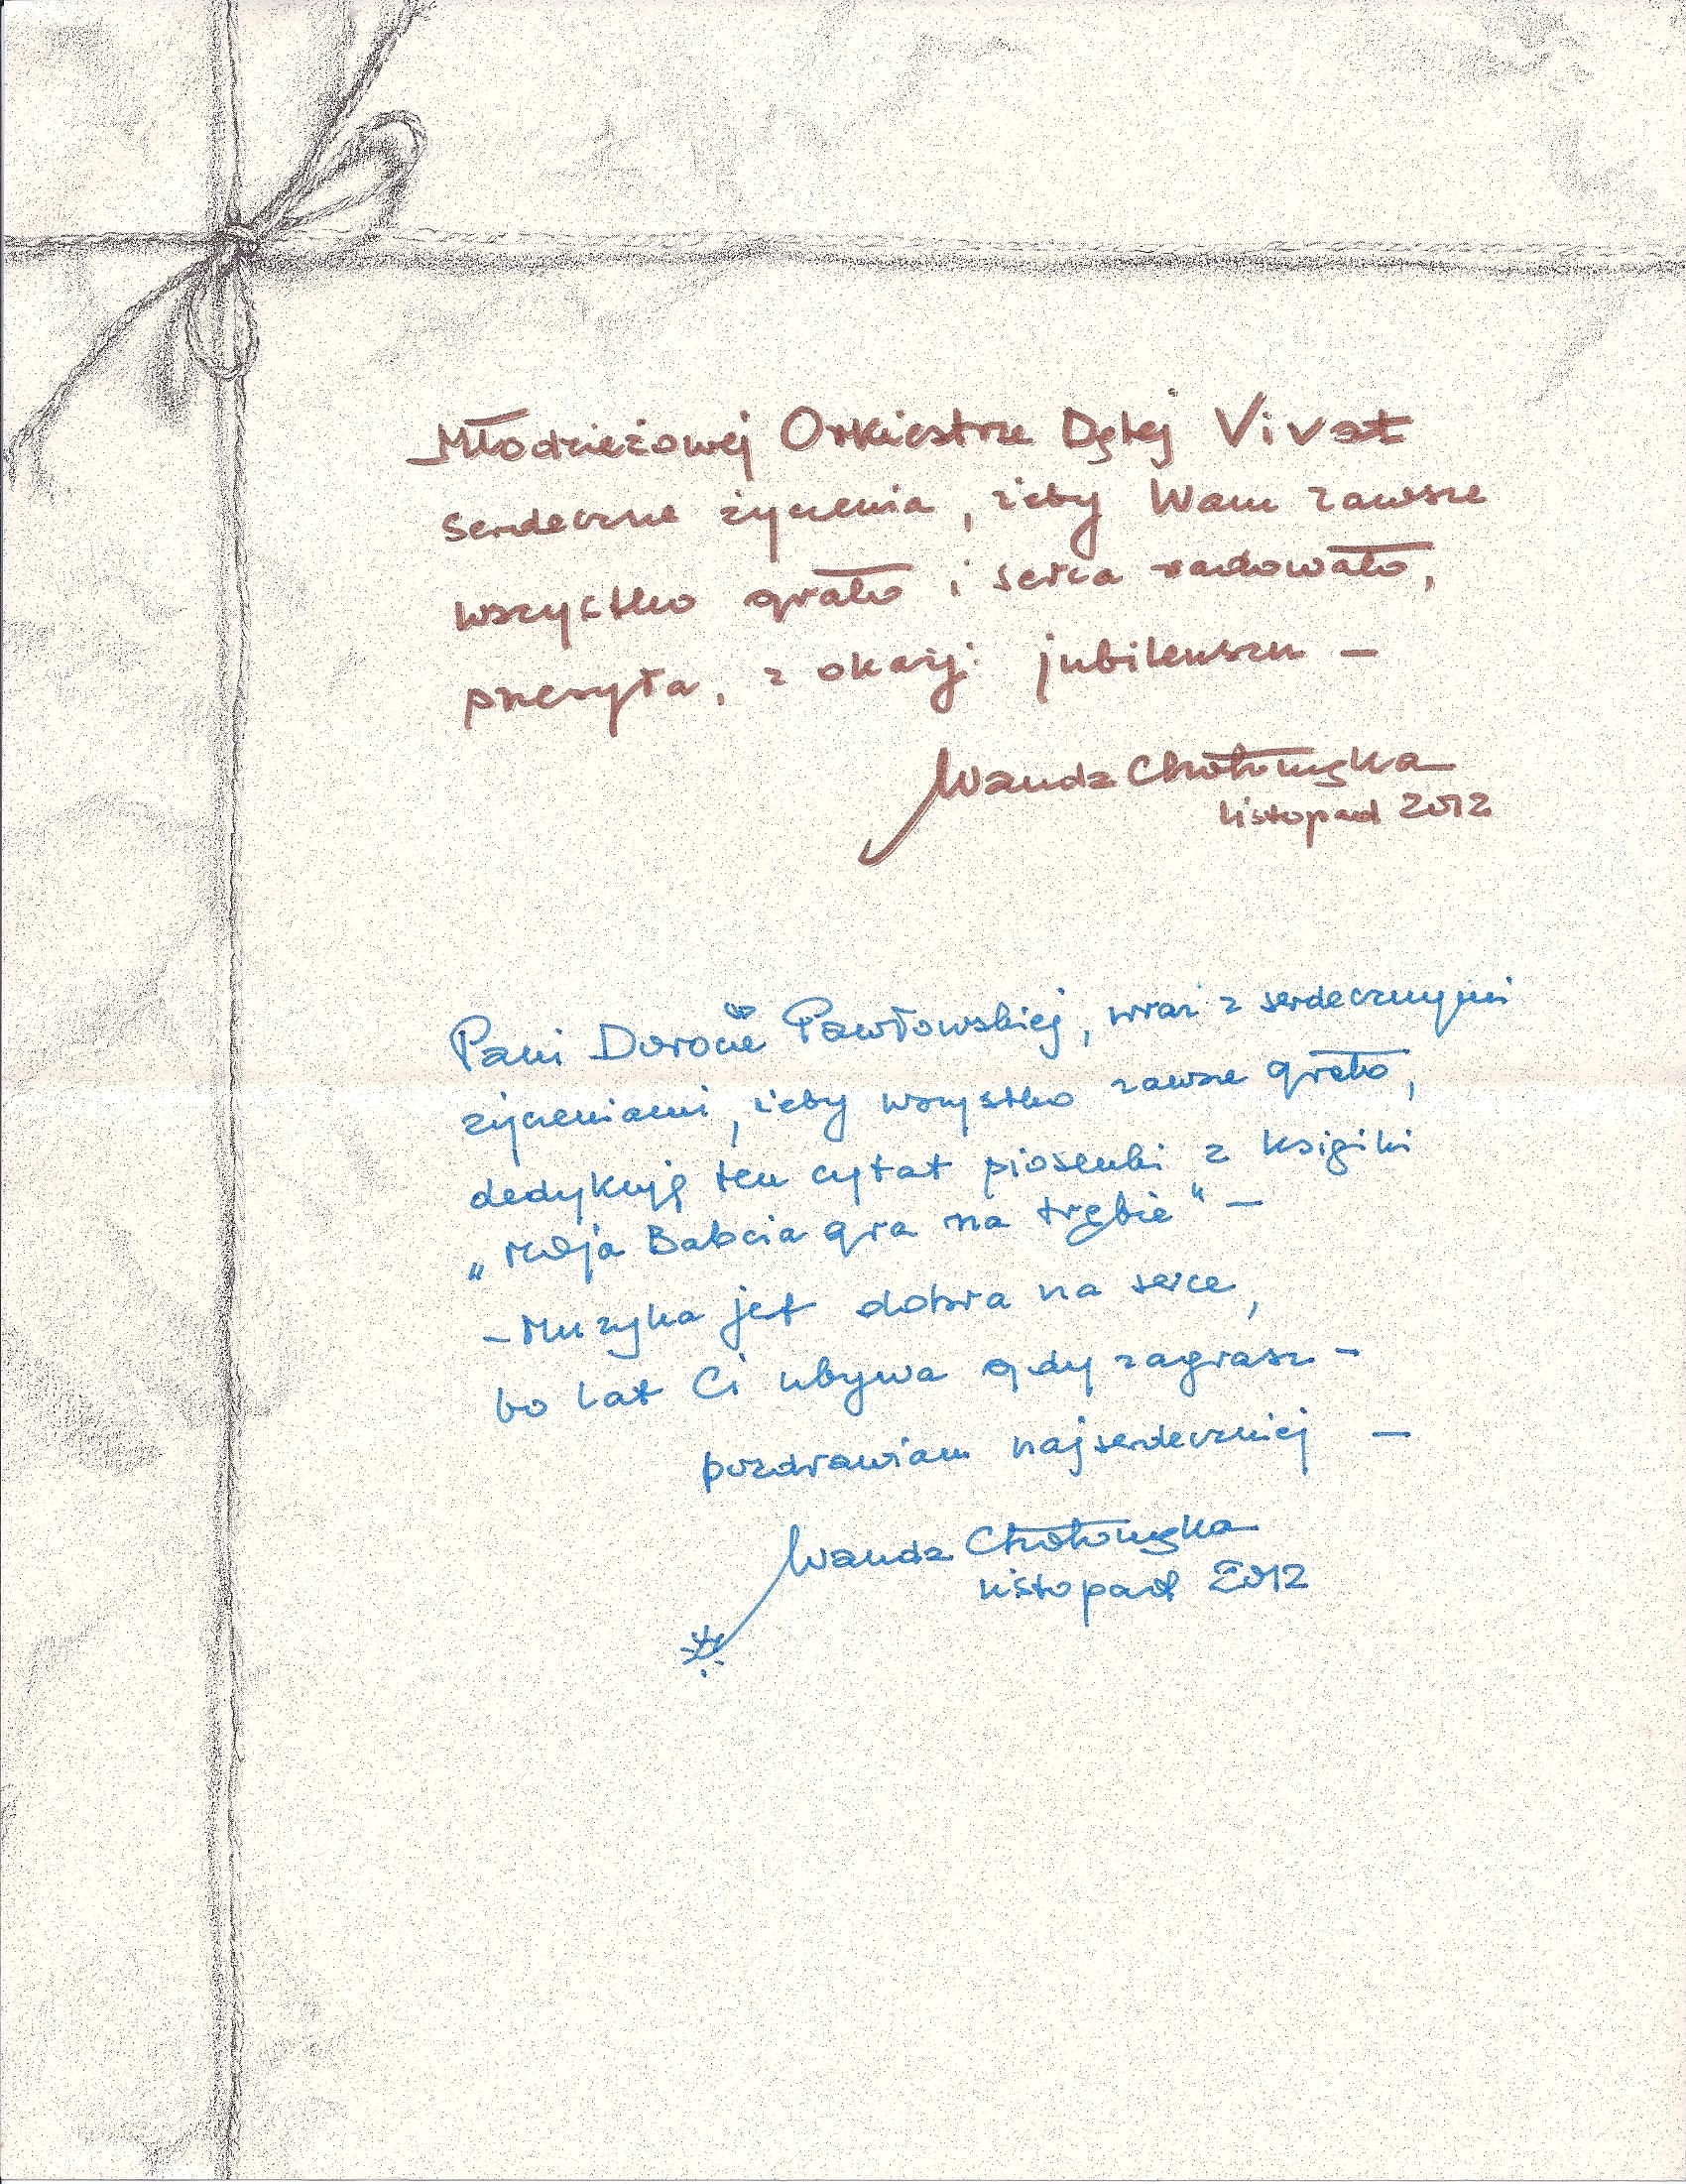 Młodzieżowej Orkiestrze Dętej Vivat
serdeczne życzenia, żeby Wam zawsze
wszystko grało i serca radowało,
przesyła, z okazji jubileuszu –
Wanda Chotomska
listopad 2012
Pani Dorocie Pawłowskiej, wraz z serdecznymi
życzeniami, żeby wszystko zawsze grało,
dedykuję ten cytat piosenki z książki
„Moja Babcia gra na trąbie" –
– Muzyka jest dobra na serce,
bo lat Ci ubywa gdy zagrasz –
pozdrawiam najserdeczniej –
Wanda Chotomska
listopad 2012